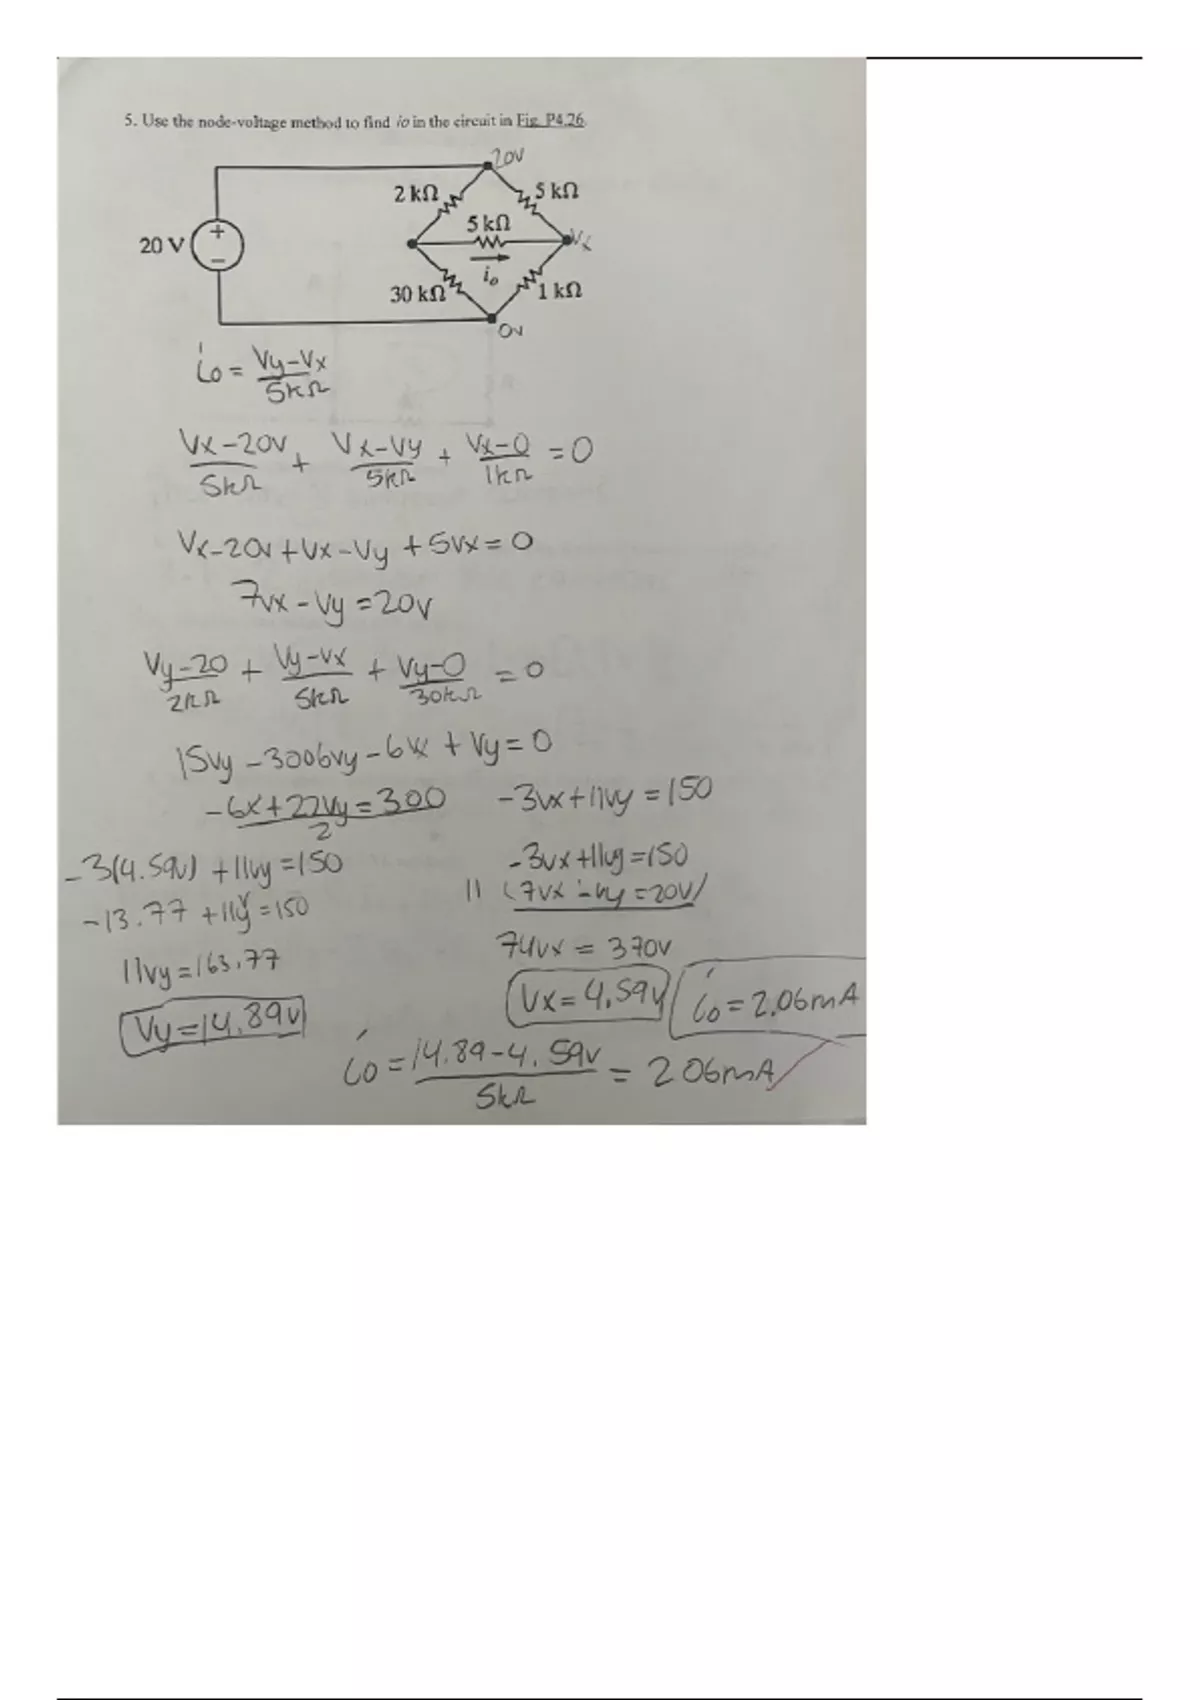 5. Use the node-voltage method to find io in the circuit in Fig. P4.26.
20V
2 kΩ
5 kΩ
5 kΩ
20 V
+
−
Vx
io
30 kΩ
1 kΩ
0v
io = Vy-Vx / 5kΩ
Vx-20v / 5kΩ + Vx-Vy / 5kΩ + Vx-0 / 1kΩ = 0
Vx-20v + Vx - Vy + 5Vx = 0
7Vx - Vy = 20v
Vy-20 / 2kΩ + Vy-Vx / 5kΩ + Vy-0 / 30kΩ = 0
15Vy - 3006Vy - 6Vx + Vy = 0
-6x + 22Vy = 300 / 2
-3Vx + 11Vy = 150
-3(4.59v) + 11Vy = 150
-3Vx + 11Vy = 150
-13.77 + 11y = 150
11 (7Vx - Vy = 20V)
11Vy = 163.77
74Vx = 370v
Vy = 14.89v
Vx = 4.59v
io = 2.06mA
io = 14.89-4.59v / 5kΩ = 2.06mA